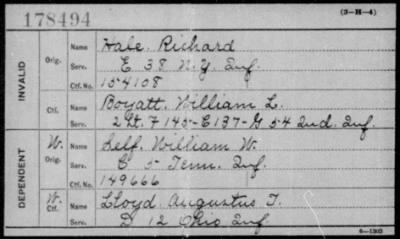 178494 (3-H-4)
INVALID Orig. Name Hale, Richard
Serv. E 38 N.Y. Inf.
Ctf. No. 154108
Ctf. Name Boyatt, William L.
Serv. 2 Lt. F 145-E 137-G 54 Ind. Inf.
DEPENDENT W. Orig. Name Self, William W.
Serv. C 5 Tenn. Inf.
Ctf. No. 149666
W. Ctf. Name Lloyd, Augustus T.
Serv. D 12 Ohio Inf.